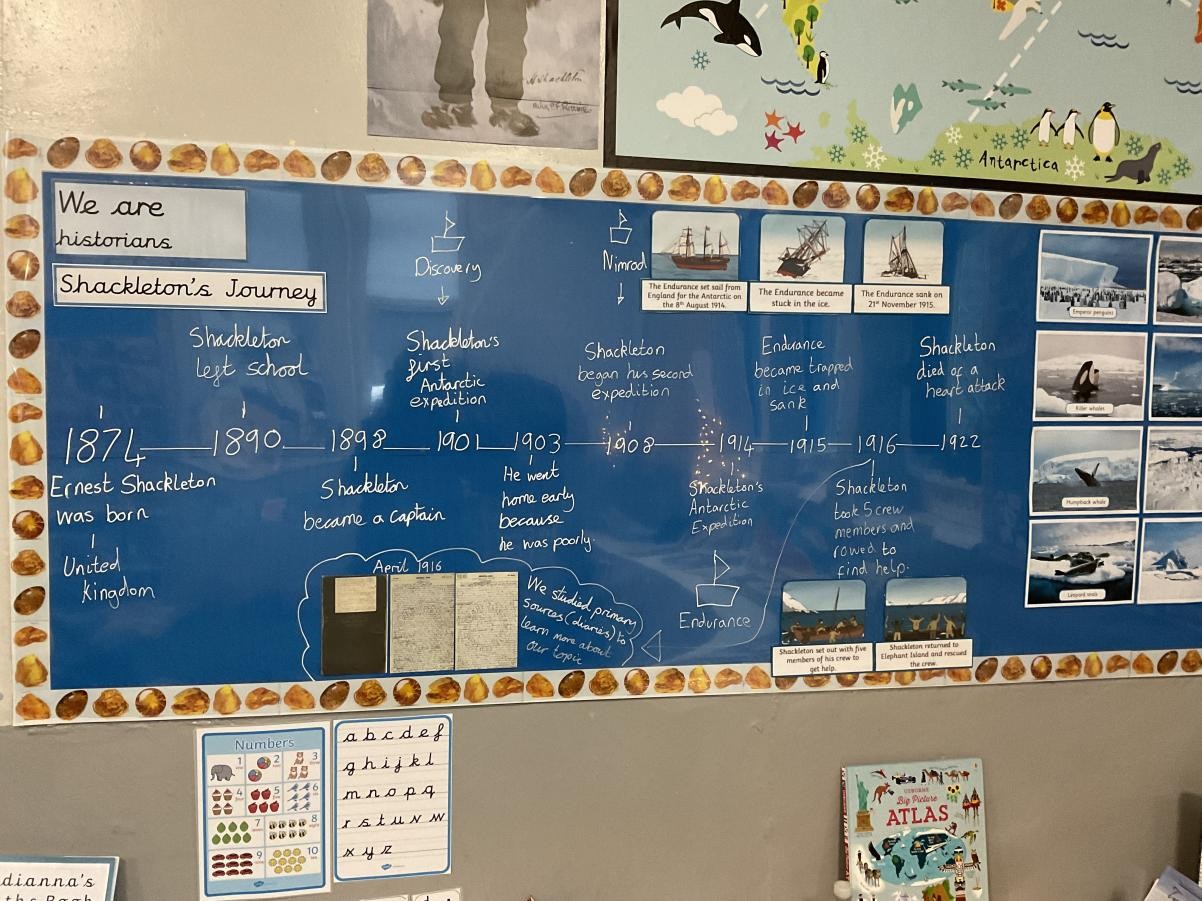 Antarctica
We are
historians
Shackleton's Journey
Discovery
Nimrod
The Endurance set sail from
England for the Antarctic on
the 8th August 1914.
The Endurance became
stuck in the ice.
The Endurance sank on
21st November 1915.
Emperor penguins
Killer whales
Humpback whale
Leopard seals
Shackleton
left school
Shackleton's
first
Antarctic
expedition
Shackleton
began his second
expedition
Endurance
became trapped
in ice and
sank
Shackleton
died of a
heart attack
1874 1890 1898 1901 1903 1908 1914 1915 1916 1922
Ernest Shackleton
was born
United
Kingdom
Shackleton
became a captain
He went
home early
because
he was poorly.
Shackleton's
Antarctic
Expedition
Endurance
Shackleton
took 5 crew
members and
rowed to
find help.
April 1916
We studied primary
sources (diaries) to
learn more about
our topic
Shackleton set out with five
members of his crew to
get help.
Shackleton returned to
Elephant Island and rescued
the crew.
Numbers
1 2 3
4 5 6
7 8
9 10
a b c d e f
g h i j k l
m n o p q
r s t u v w
x y z
USBORNE
Big Picture
ATLAS
dianna's